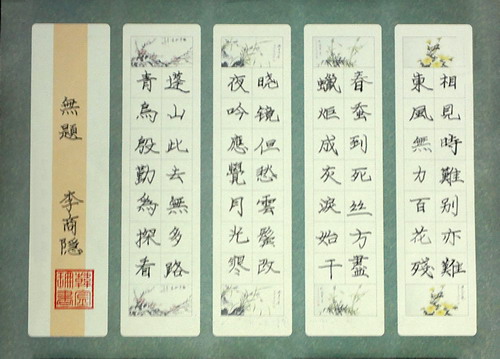 相見時難别亦難
東風無力百花殘
春蚕到死丝方盡
蠟炬成灰淚始干
晓镜但愁雲鬢改
夜吟應覺月光寒
蓬山此去無多路
青鳥殷勤為探看
無題 李商隐